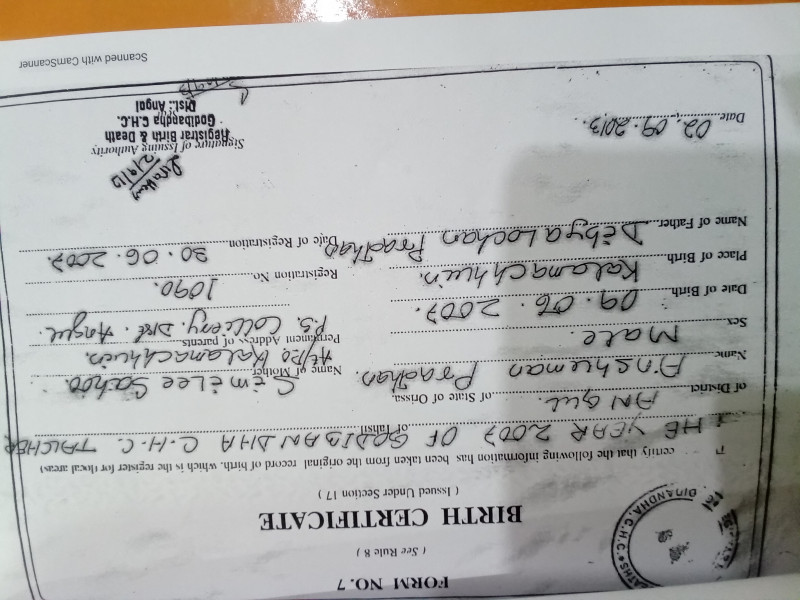 FORM NO.7
( See Rule 8 )
BIRTH CERTIFICATE
( Issued Under Section 17 )
certify that the following information has been taken from the original record of birth. which is the register for (local areas)
HE YEAR 2007 OF GODIBANDHA C.H.C. TALCHER
of Tahsil
ANGUL.
of District of State of Orissa.
Name Anshuman Pradhan.
Name of Mother Simelee Sahoo
Sex Male.
Permanent Address of parents At/Po Kalamachhuin.
P.S. Colliery. Dist. Angul.
Date of Birth 09.06.2007.
Registration No. 1090.
Place of Birth Kalamachhuin.
Date of Registration 30.06.2007.
Name of Father Dibya Lochan Pradhan
Date 02.09.2013.
Signature of Issuing Authority
Registrar Birth & Death
Godibandha C.H.C.
Dist.: Angul
Scanned with CamScanner